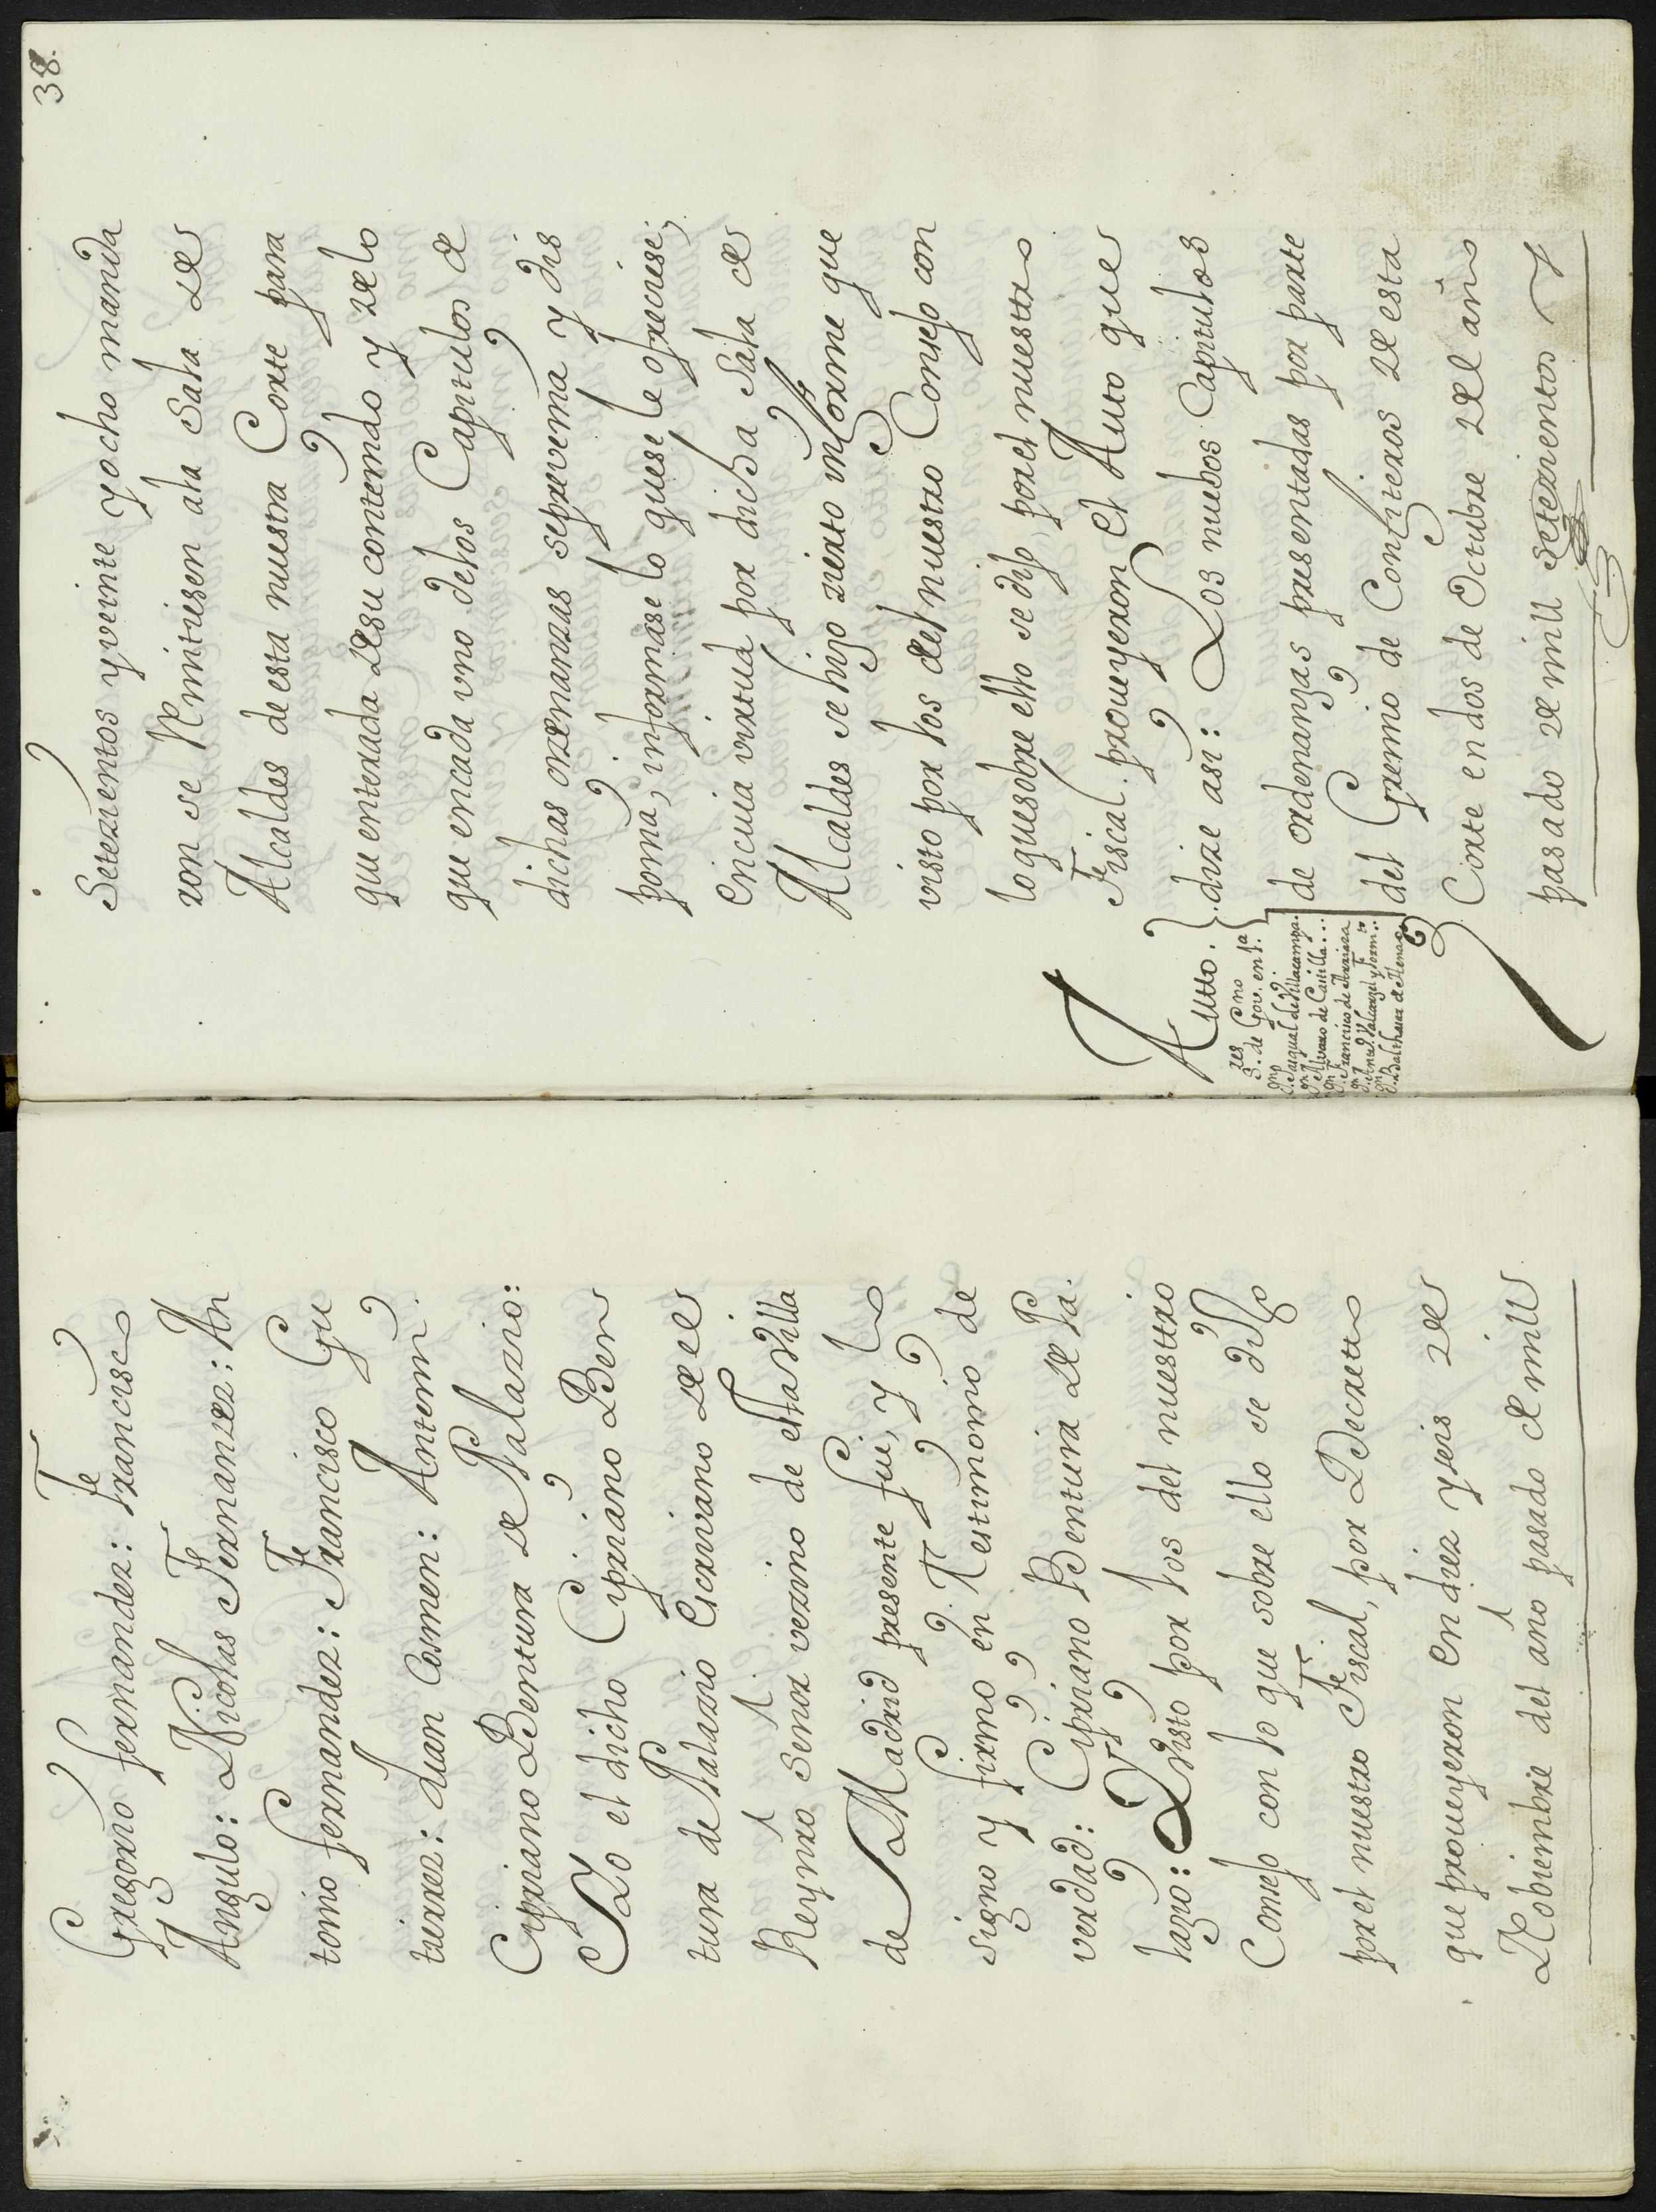 Gregorio fernandez: Francisco
Angulo: Nicolas Fernandez: An
tonio fernandez: Francisco Gu
tierrez: Juan Cosmen: Antemi:
Cipriano Bentura de Palazio:
Yo el dicho Cipriano Ben
tura de Palazio Escrivano de el
Reyno Senor vezino de esta Villa
de Madrid presente fui, y lo
signo y firmo en Testimonio de
verdad: Cipriano Bentura de Pa.
lazio: Y Visto por los del nuestro
Consejo con lo que sobre ello se dijo
porel nuestro Fiscal, por Decreto
que proueyeron en diez y seis de
Nobiembre del año pasado de mill
38.
Setezientos y veinte y ocho manda
ron se Remitiesen ala Sala de
Alcaldes de esta nuestra Corte para
que enterada desu contenido y de lo
que encada uno delos Capitulos de
dichas ordenanzas seprevenia y dis
ponia, informase lo quese le ofreciese;
En cuia virtud por dicha Sala de
Alcaldes se hizo zierto informe que
visto por los del nuestro Consejo con
loquesobre ello se dijo, porel nuestro
Fiscal proueyeron el Auto que
dize asi: Los nuebos Capitulos
de ordenanzas presentadas por parte
del Gremio de Confiteros de esta
Corte en dos de Octubre del año
pasado de mill setezientos y
Autto.
res no
S. de Gov. en 1a
Dn Pasqual de Villacampa.
Dn Alvaro de Castilla...
Dn Francisco de Arriaza
Dn
Dn Balthasar de Henao